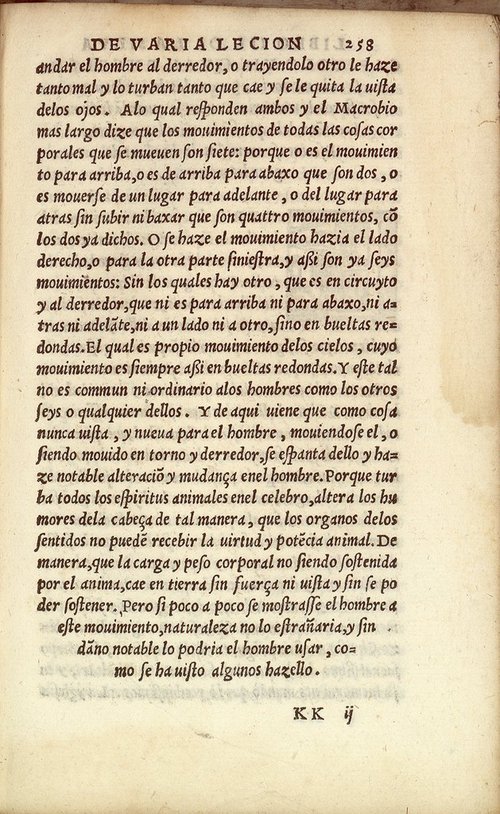 DE VARIA LECION 258
andar el hombre al derredor, o trayendolo otro le haze
tanto mal y lo turban tanto que cae y se le quita la uista
delos ojos. Alo qual responden ambos y el Macrobio
mas largo dize que los mouimientos de todas las cosas cor
porales que se mueuen son siete: porque o es el mouimien
to para arriba, o es de arriba para abaxo que son dos, o
es mouerse de un lugar para adelante, o del lugar para
atras sin subir ni baxar que son quattro mouimientos, cõ
los dos ya dichos. O se haze el mouimiento hazia el lado
derecho, o para la otra parte siniestra, y aßi son ya seys
mouimientos: Sin los quales hay otro, que es en circuyto
y al derredor, que ni es para arriba ni para abaxo, ni a=
tras ni adelãte, ni a un lado ni a otro, sino en bueltas re=
dondas. El qual es propio mouimiento delos cielos, cuyo
mouimiento es siempre aßi en bueltas redondas. Y este tal
no es commun ni ordinario alos hombres como los otros
seys o qualquier dellos. Y de aqui uiene que como cosa
nunca uista, y nueua para el hombre, mouiendose el, o
siendo mouido en torno y derredor, se espanta dello y ha=
ze notable alteraciõ y mudança enel hombre. Porque tur
ba todos los espiritus animales enel celebro, altera los hu
mores dela cabeça de tal manera, que los organos delos
sentidos no puedẽ recebir la uirtud y potẽcia animal. De
manera, que la carga y peso corporal no siendo sostenida
por el anima, cae en tierra sin fuerça ni uista y sin se po
der sostener. Pero si poco a poco se mostrasse el hombre a
este mouimiento, naturaleza no lo estrañaria, y sin
dãno notable lo podria el hombre usar, co=
mo se ha uisto algunos hazello.
KK ij